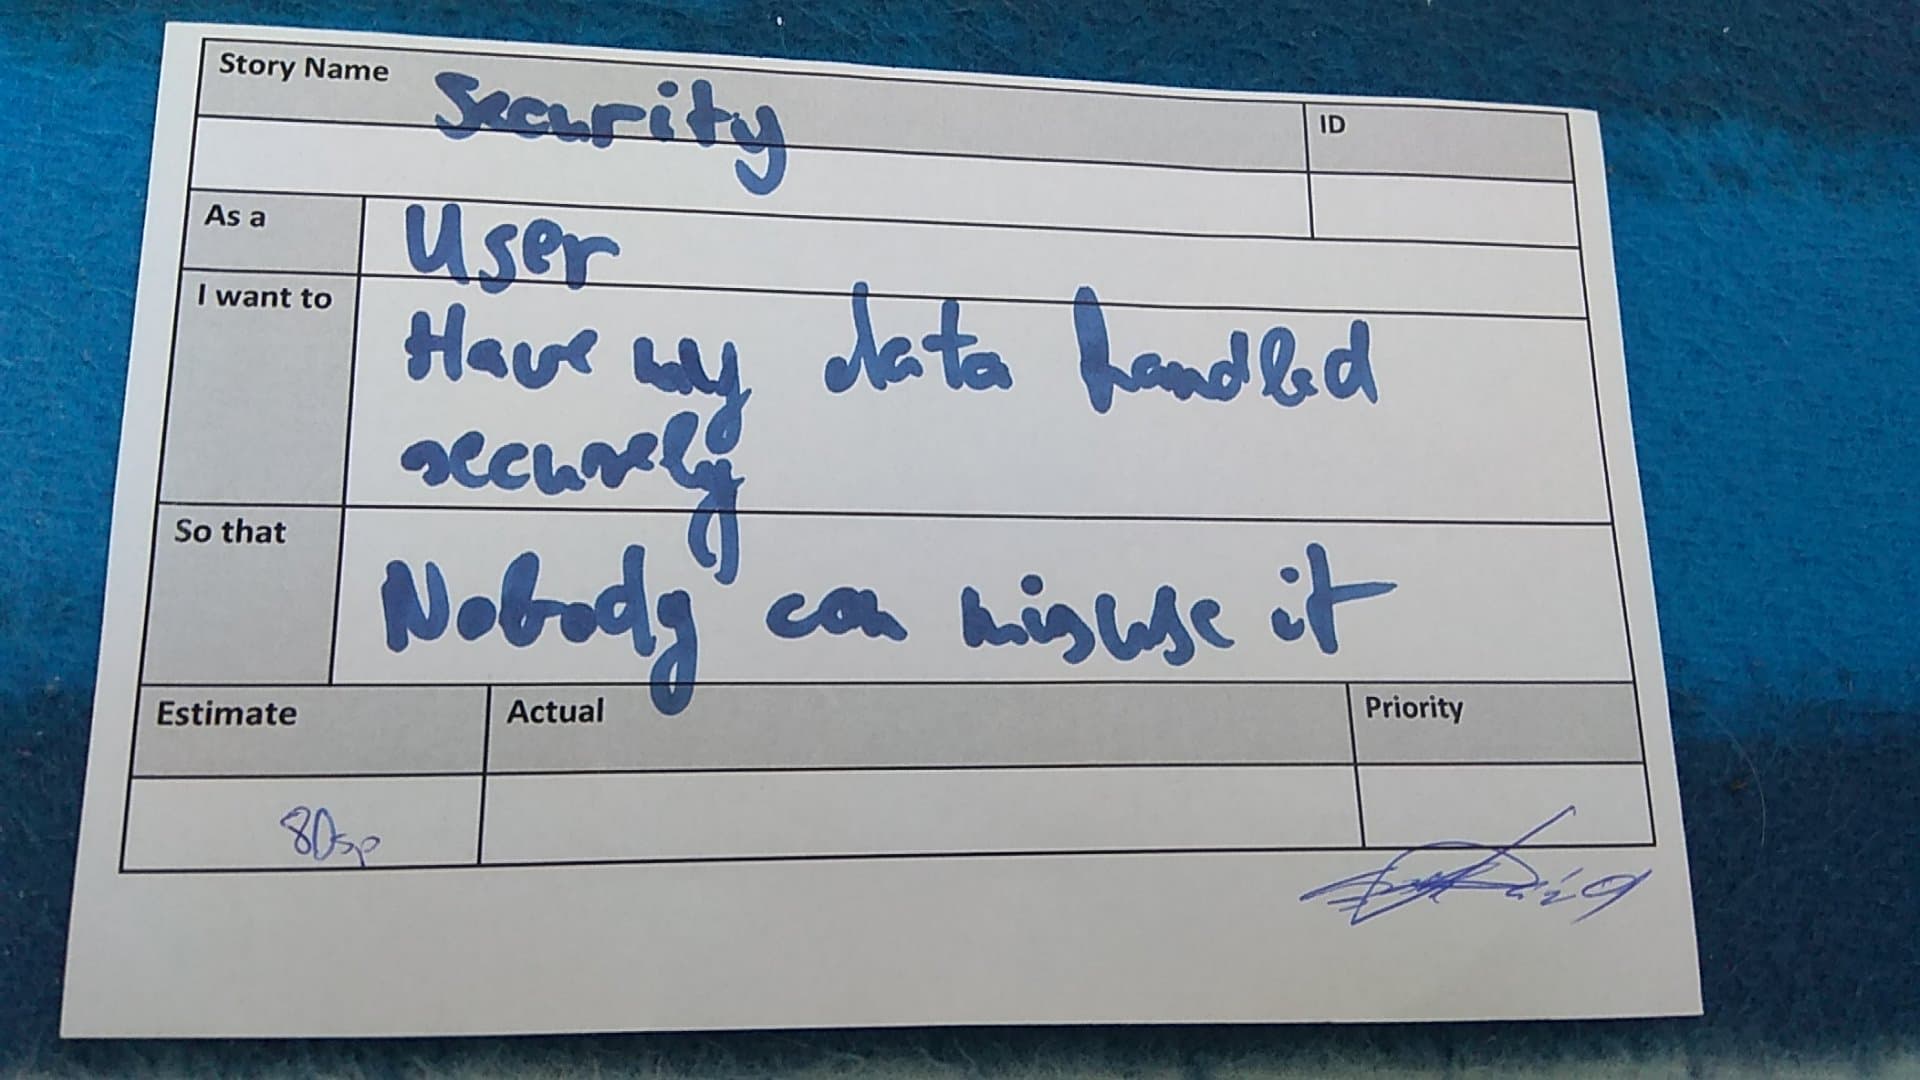 Story Name Security ID
As a User
I want to Have my data handled
securely
So that Nobody can misuse it
Estimate Actual Priority
80sp